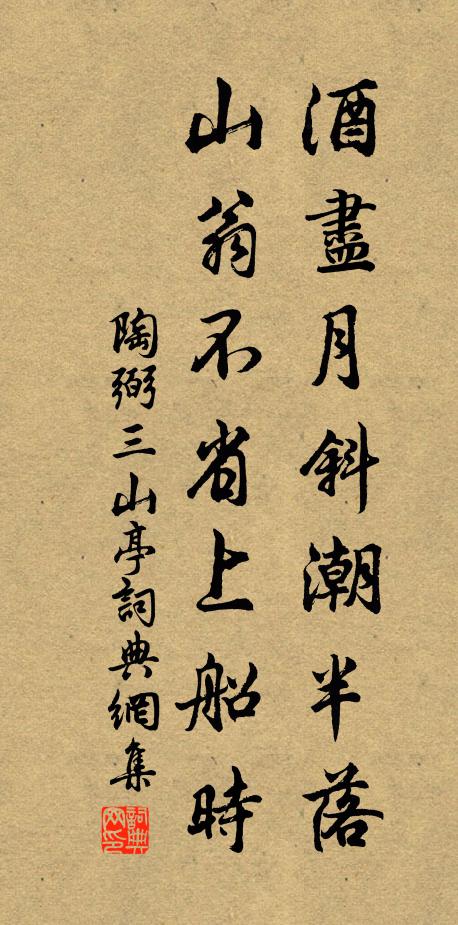 酒盡月斜潮半落
山翁不省上船時
陶弼三山亭詞典網集
詞典网印